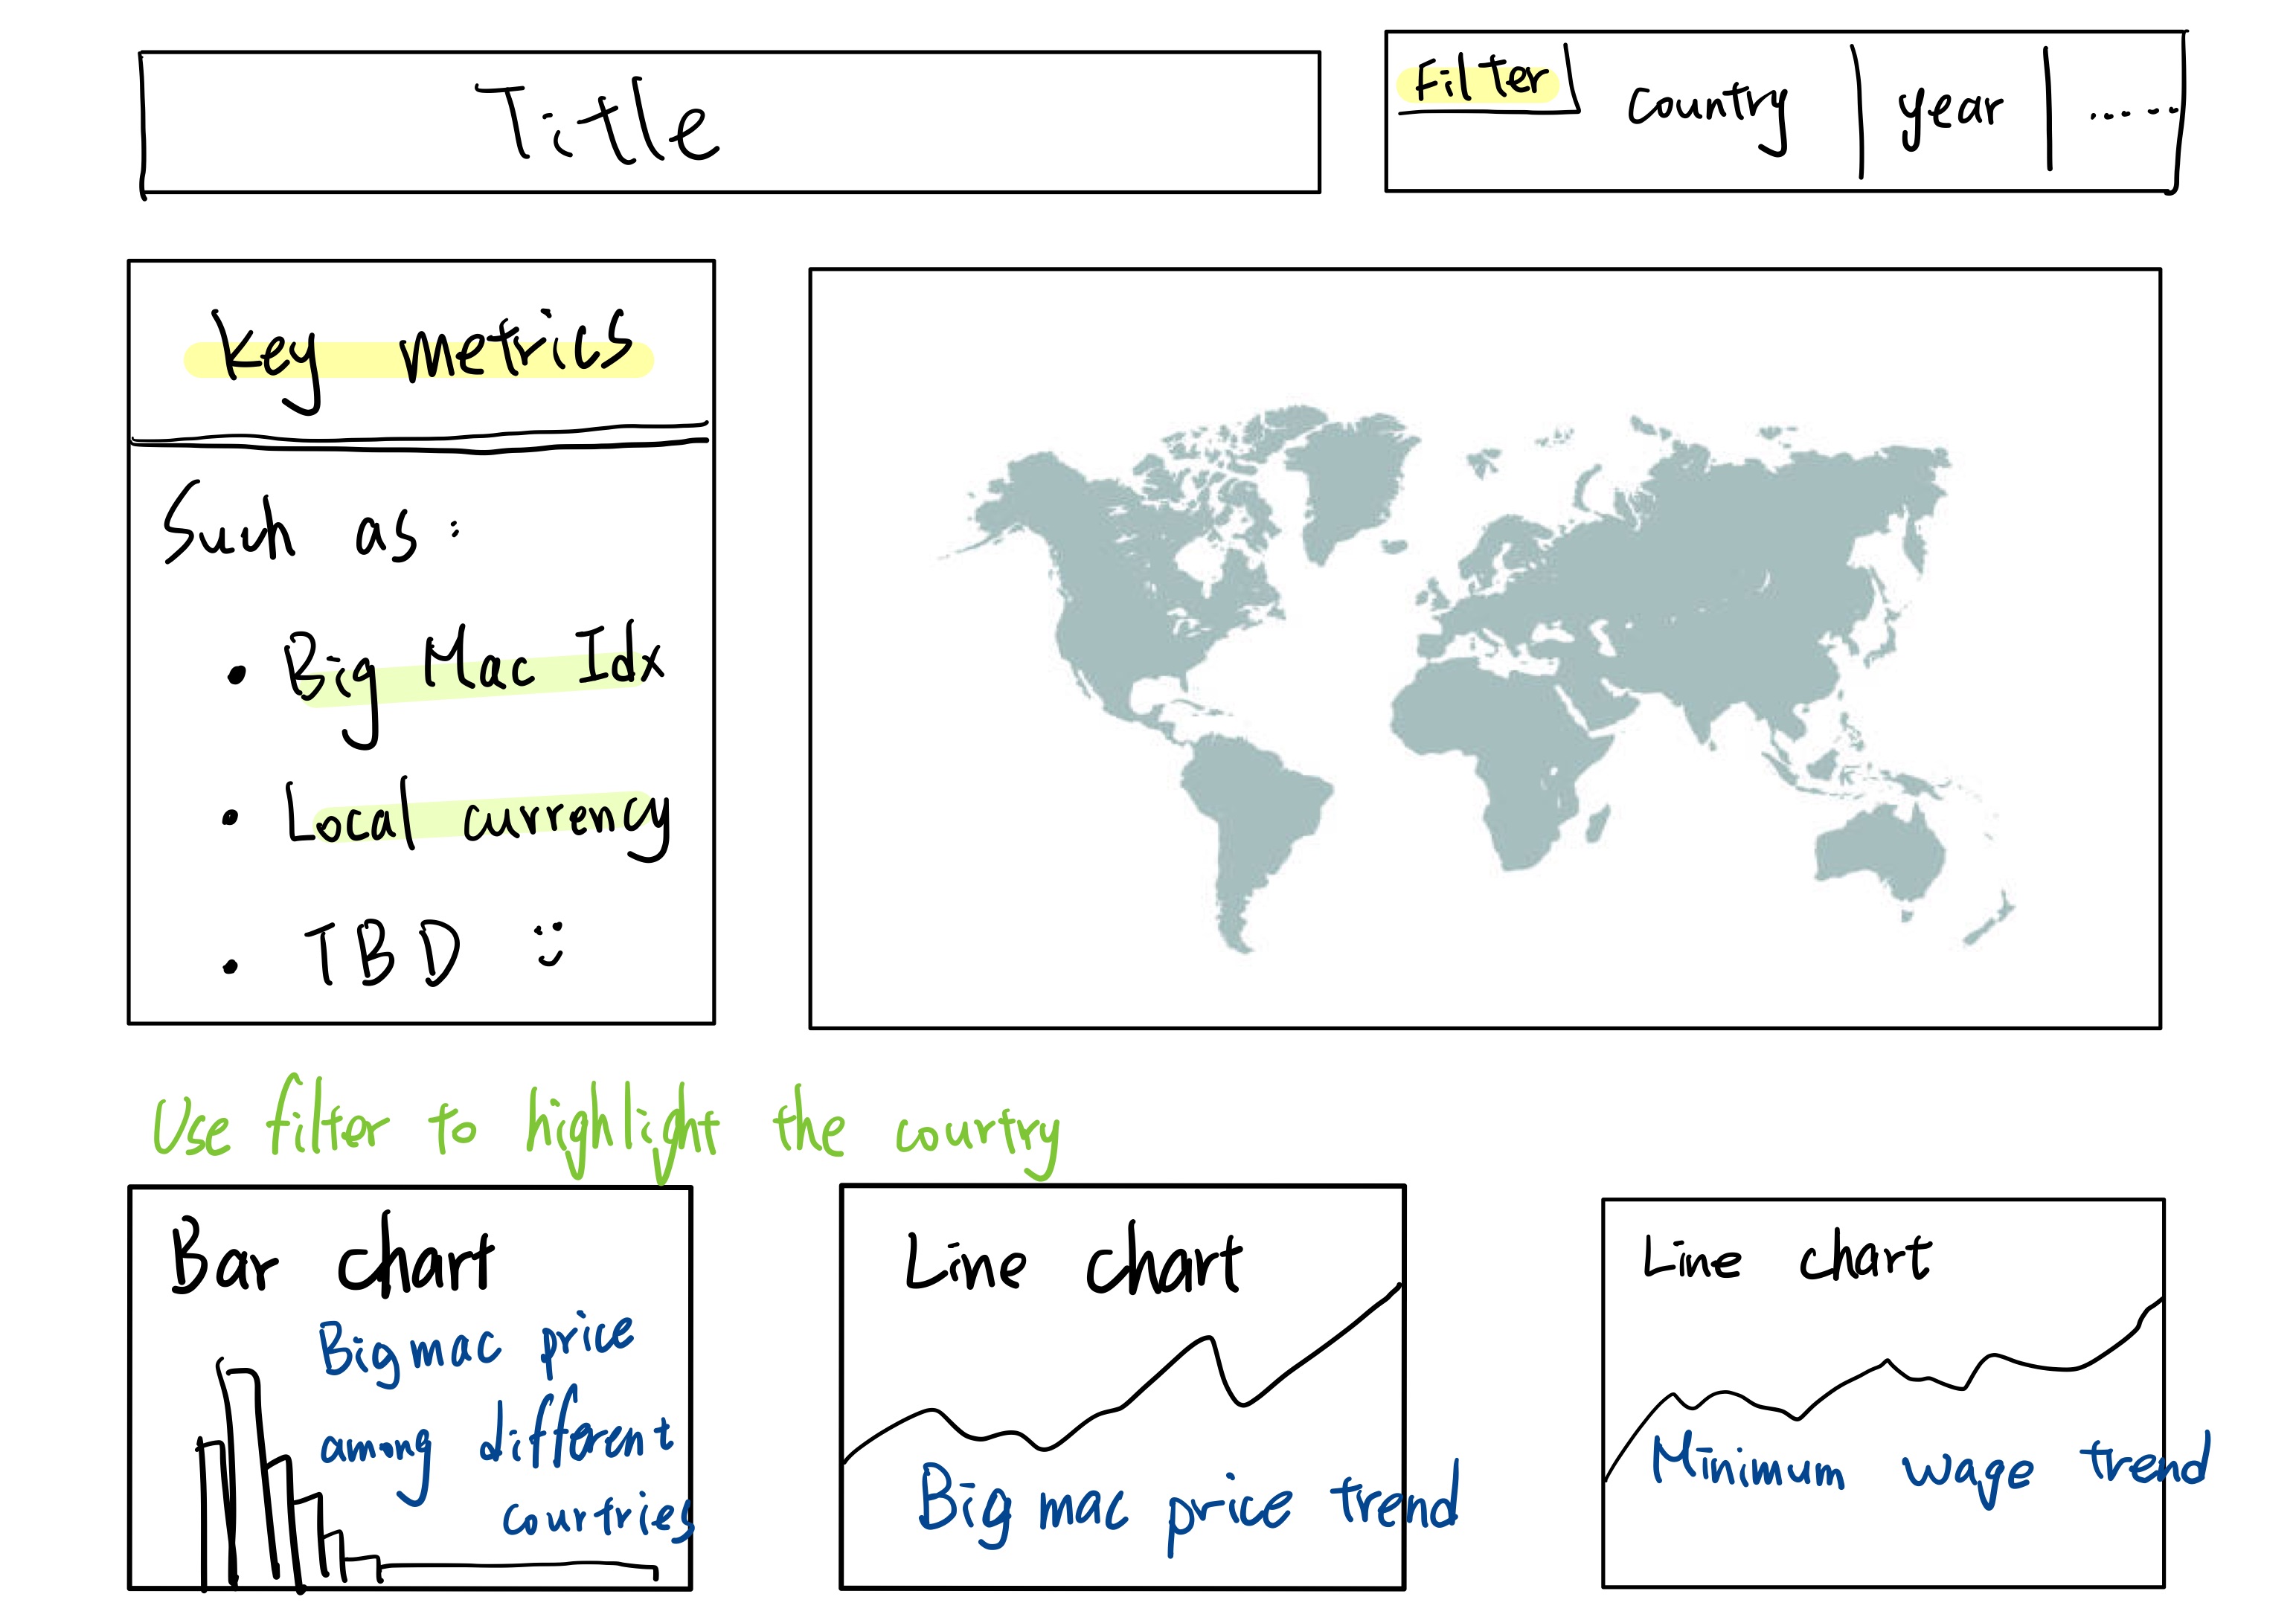 Title
Filter
country
year
......
key metrics
Such as:
• Big Mac Idx
• Local currency
• TBD
Use filter to highlight the country
Bar chart
Bigmac price
among different
countries
Line chart
Big mac price trend
Line chart
Minimum wage trend